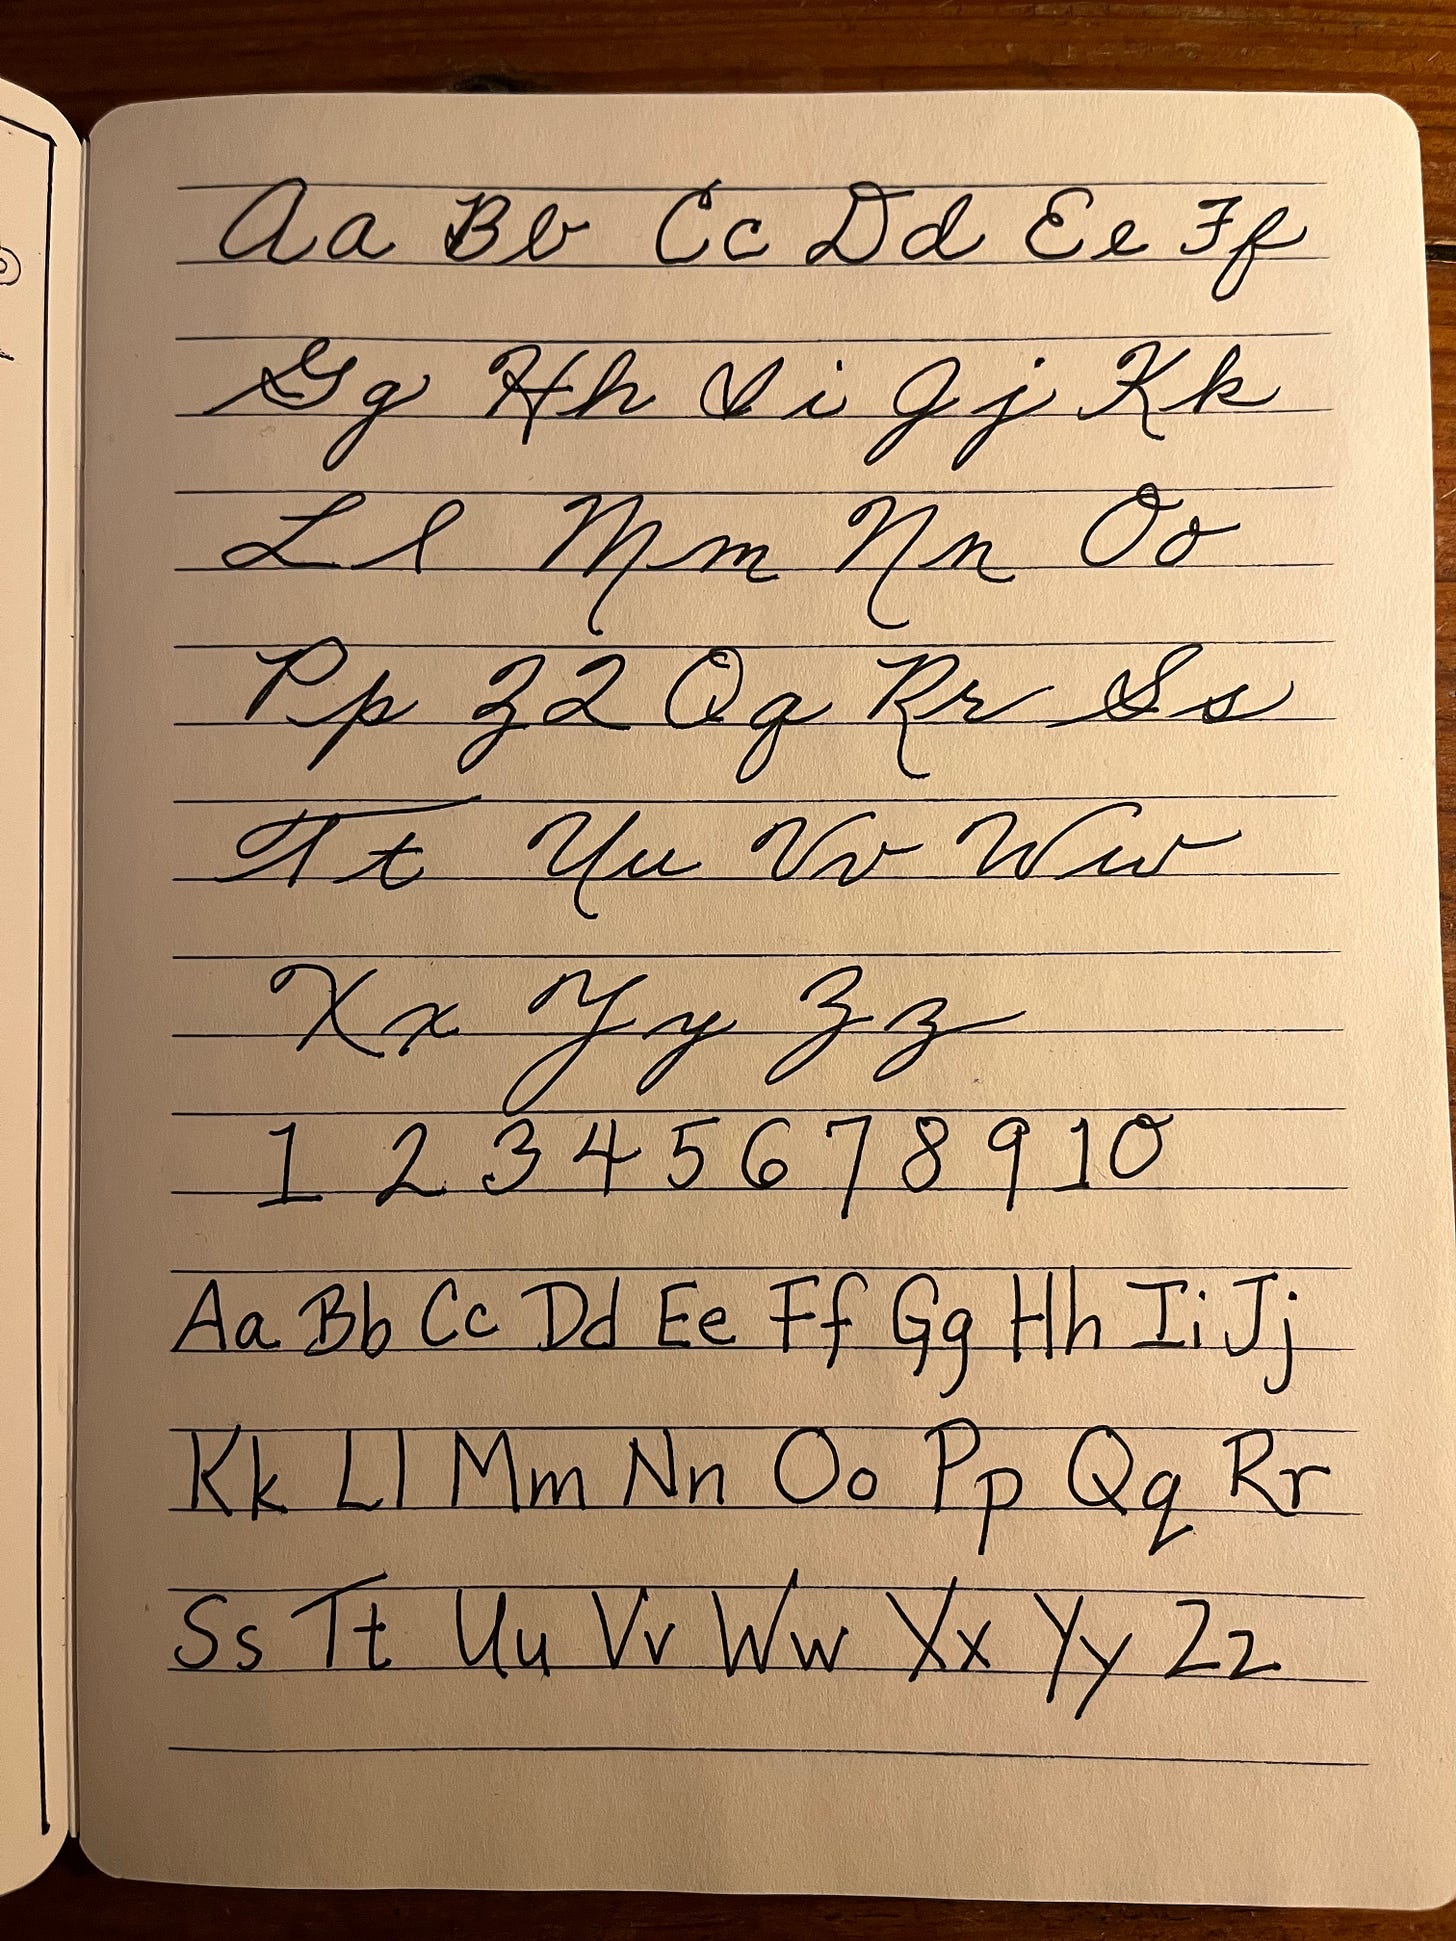 Aa Bb Cc Dd Ee Ff
Gg Hh Ii Jj Kk
Ll Mm Nn Oo
Pp Z2 Qq Rr Ss
Tt Uu Vv Ww
Xx Yy Zz
1 2 3 4 5 6 7 8 9 10
Aa Bb Cc Dd Ee Ff Gg Hh Ii Jj
Kk Ll Mm Nn Oo Pp Qq Rr
Ss Tt Uu Vv Ww Xx Yy Zz